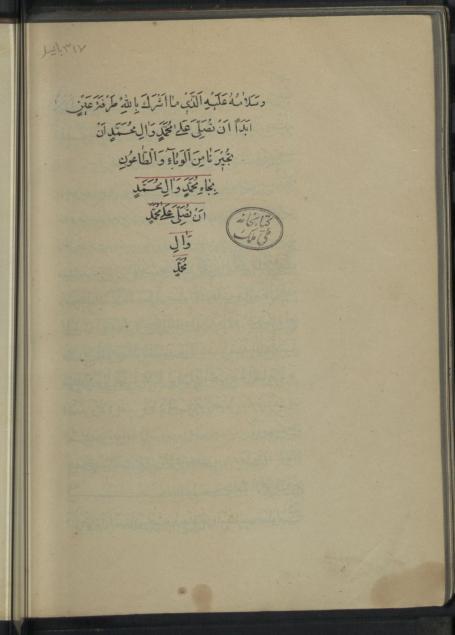 ۳۱۷
وسلامه عَلَيْهِ الَّذَي مٰا اَشْرَكَ بِاللهِ طَرْفَةَ عَيْنٍ
اَبَداً اَنْ تُصَلِّيَ عَلىٰ مُحَمَّدٍ وَالِ مُحَمَّدٍ اَنْ
تُجْيرَنٰا مِنَ الْوَبٰاءِ وَ الْطّٰاعُونِ
بِجٰاهِ مُحَمَّدٍ وَالِ مُحَمَّدٍ
اَنْ تُصَلِّيَ عَلىٰ مُحَمَّدٍ
وَالِ
مُحَمَّدٍ
كتابخانه
ملی ملک